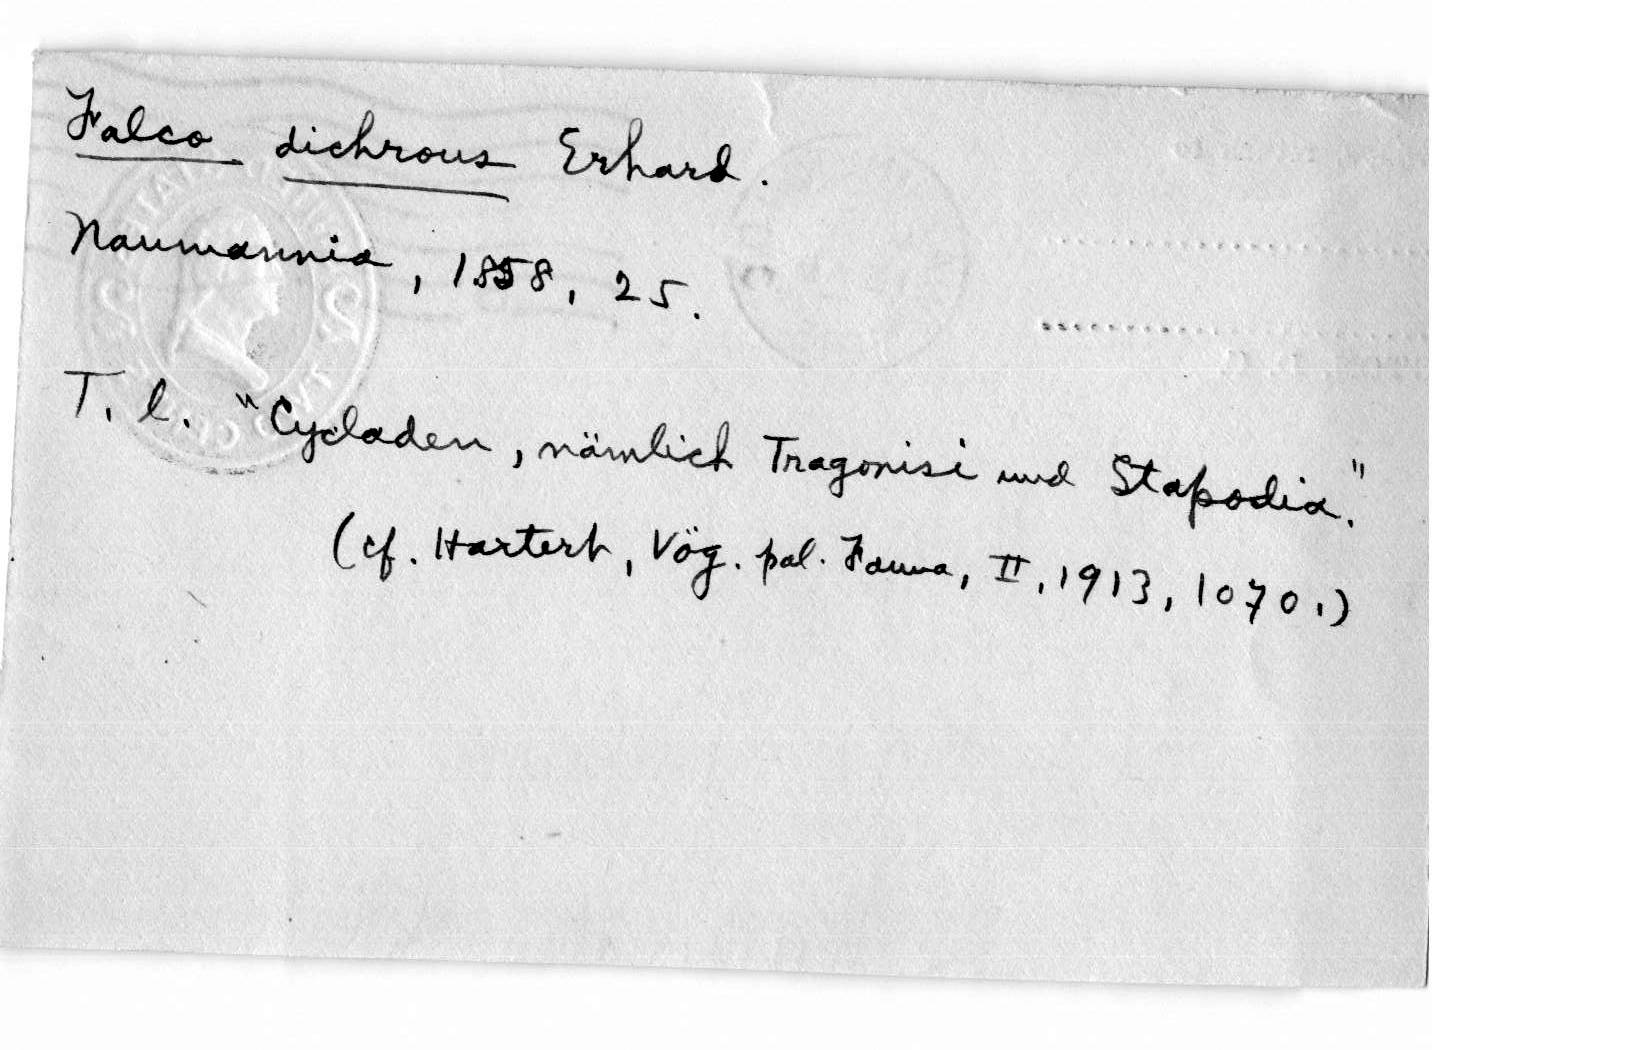 Falco dichrous Erhard.
Naumannia, 1858, 25.
T. l. "Cycladen, nämlich Tragonisi und Stapodia."
(cf. Hartert, Vög. pal. Fauna, II, 1913, 1070.)